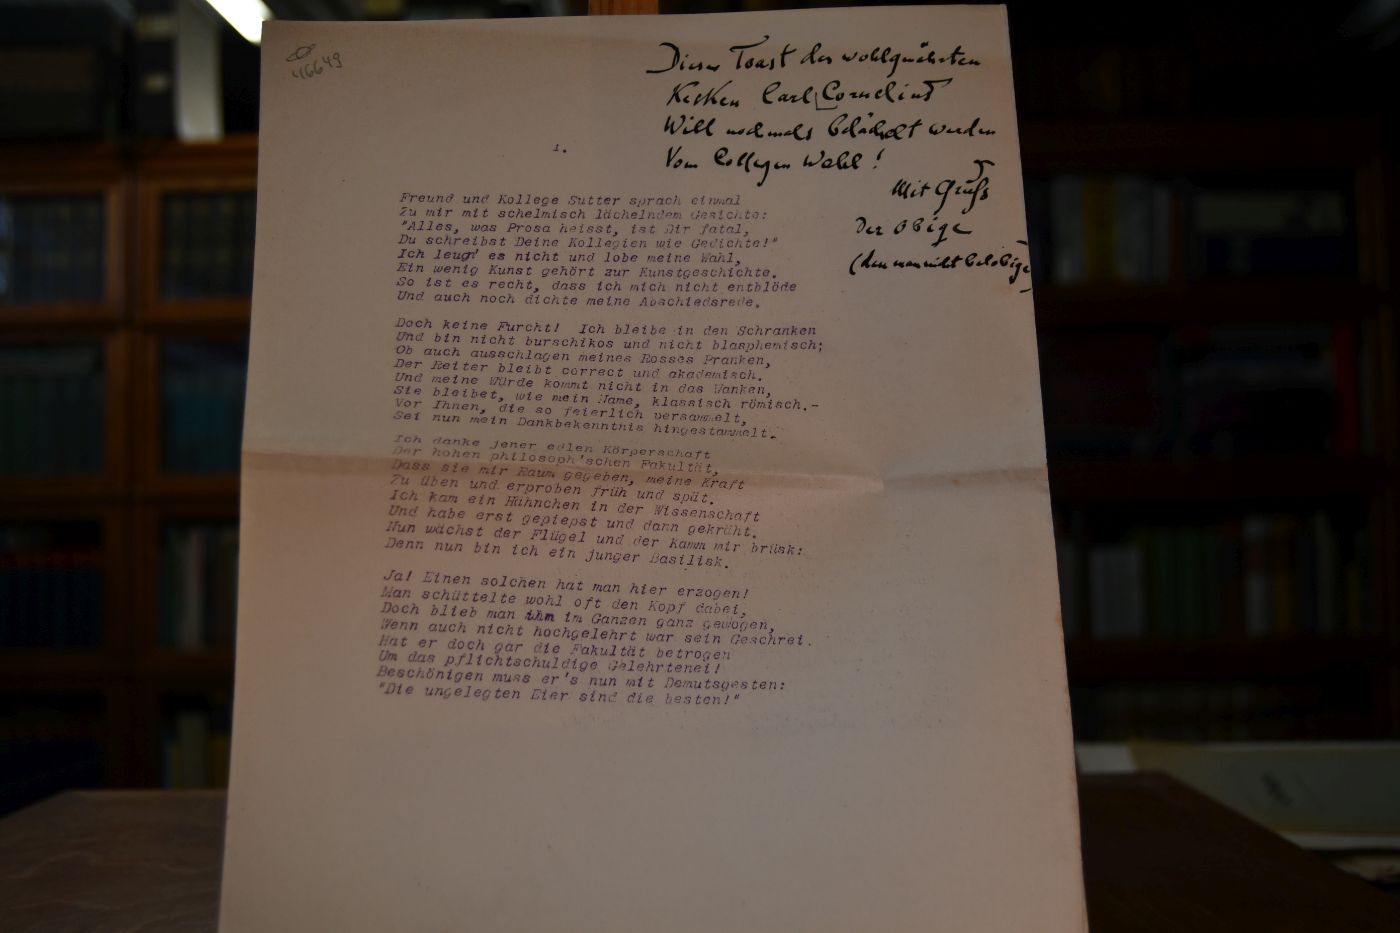 46649
Dieser Toast des wohlgenährten
Kecken Carl Cornelius
Will nochmals belächelt werden
Vom Collegen Wahl!
Mit Gruß
Der Obige
(den man nicht belobige
1.
Freund und Kollege Sutter sprach einmal
Zu mir mit schelmisch lächelndem Gesichte:
"Alles, was Prosa heisst, ist Dir fatal,
Du schreibst Deine Kollegien wie Gedichte!"
Ich leugn' es nicht und lobe meine Wahl,
Ein wenig Kunst gehört zur Kunstgeschichte.
So ist es recht, dass ich mich nicht entblöde
Und auch noch dichte meine Abschiedsrede.
Doch keine Furcht! Ich bleibe in den Schranken
Und bin nicht burschikos und nicht blasphemisch;
Ob auch ausschlagen meines Rosses Pranken,
Der Reiter bleibt correct und akademisch.
Und meine Würde kommt nicht in das Wanken,
Sie bleibet, wie mein Name, klassisch römisch.-
Vor Ihnen, die so feierlich versammelt,
Sei nun mein Dankbekenntnis hingestammelt.
Ich danke jener edlen Körperschaft
Der hohen philosoph'schen Fakultät,
Dass sie mir Raum gegeben, meine Kraft
Zu üben und erproben früh und spät.
Ich kam ein Hähnchen in der Wissenschaft
Und habe erst gepiepst und dann gekräht.
Nun wächst der Flügel und der Kamm mir brüsk:
Denn nun bin ich ein junger Basilisk.
Ja! Einen solchen hat man hier erzogen!
Man schüttelte wohl oft den Kopf dabei,
Doch blieb man ihm im Ganzen ganz gewogen,
Wenn auch nicht hochgelehrt war sein Geschrei.
Hat er doch gar die Fakultät betrogen
Um das pflichtschuldige Gelehrtenei!
Beschönigen muss er's nun mit Demutsgesten:
"Die ungelegten Eier sind die besten!"